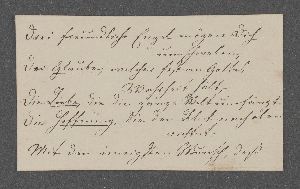 Drei freundliche Engel mögen Dich
umschweben,
Der Glaube, welcher fest an Gottes
Wahrheit hält,
Die Liebe, die die ganze Welt umfängt
Die Hoffnung, die den Blick nach oben
richtet.
Mit den innigsten Wunsch, daß